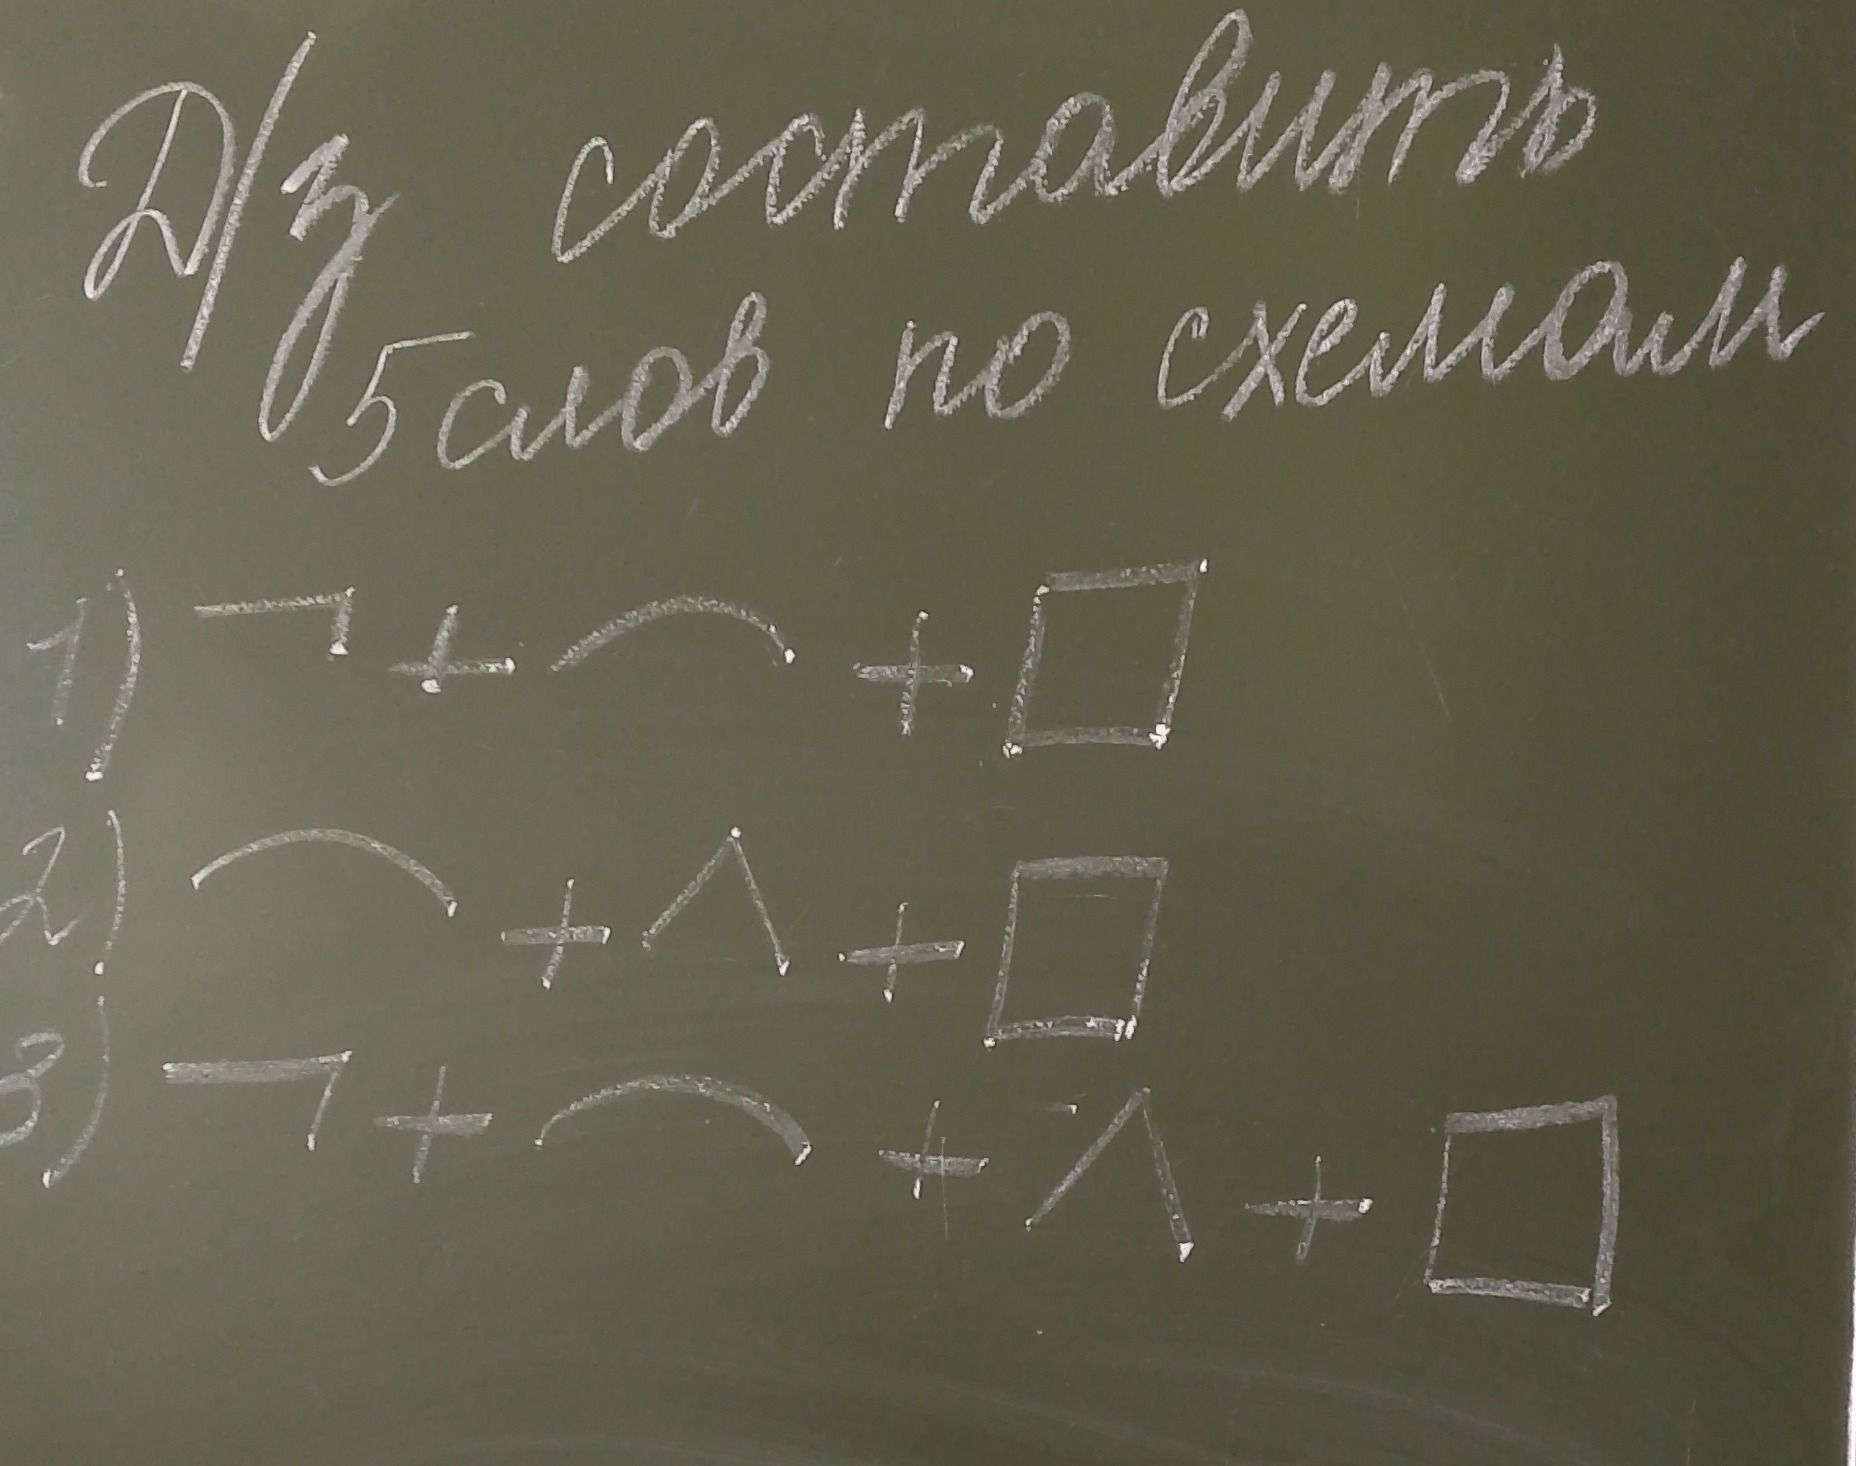 Д/з составить
5 слов по схемам
1) ¬ + ⌒ + □
2) ⌒ + ^ + □
3) ¬ + ⌒ + ^ + □